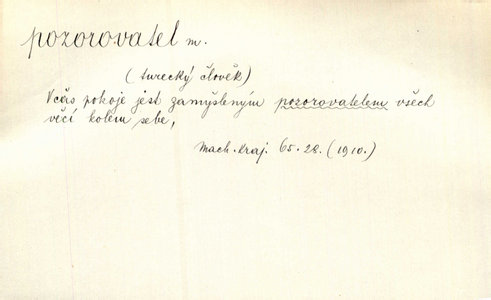 pozorovatel m.
(turecký člověk)
V čas pokoje jest zamyšleným pozorovatelem všech
věcí kolem sebe,
Mach. Kraj. 65. 28. (1910.)